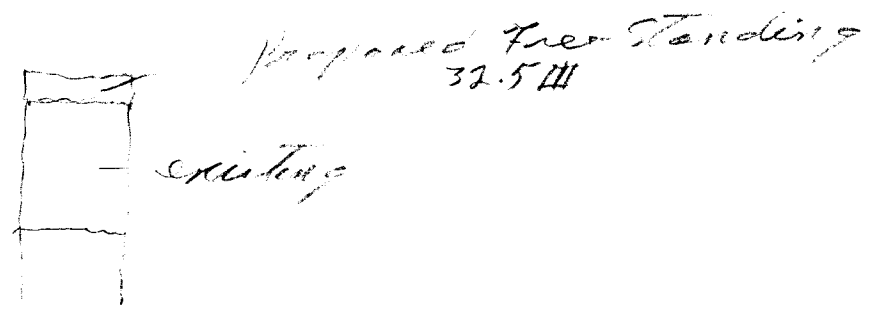 Proposed Free Standing
32.5 III
existing